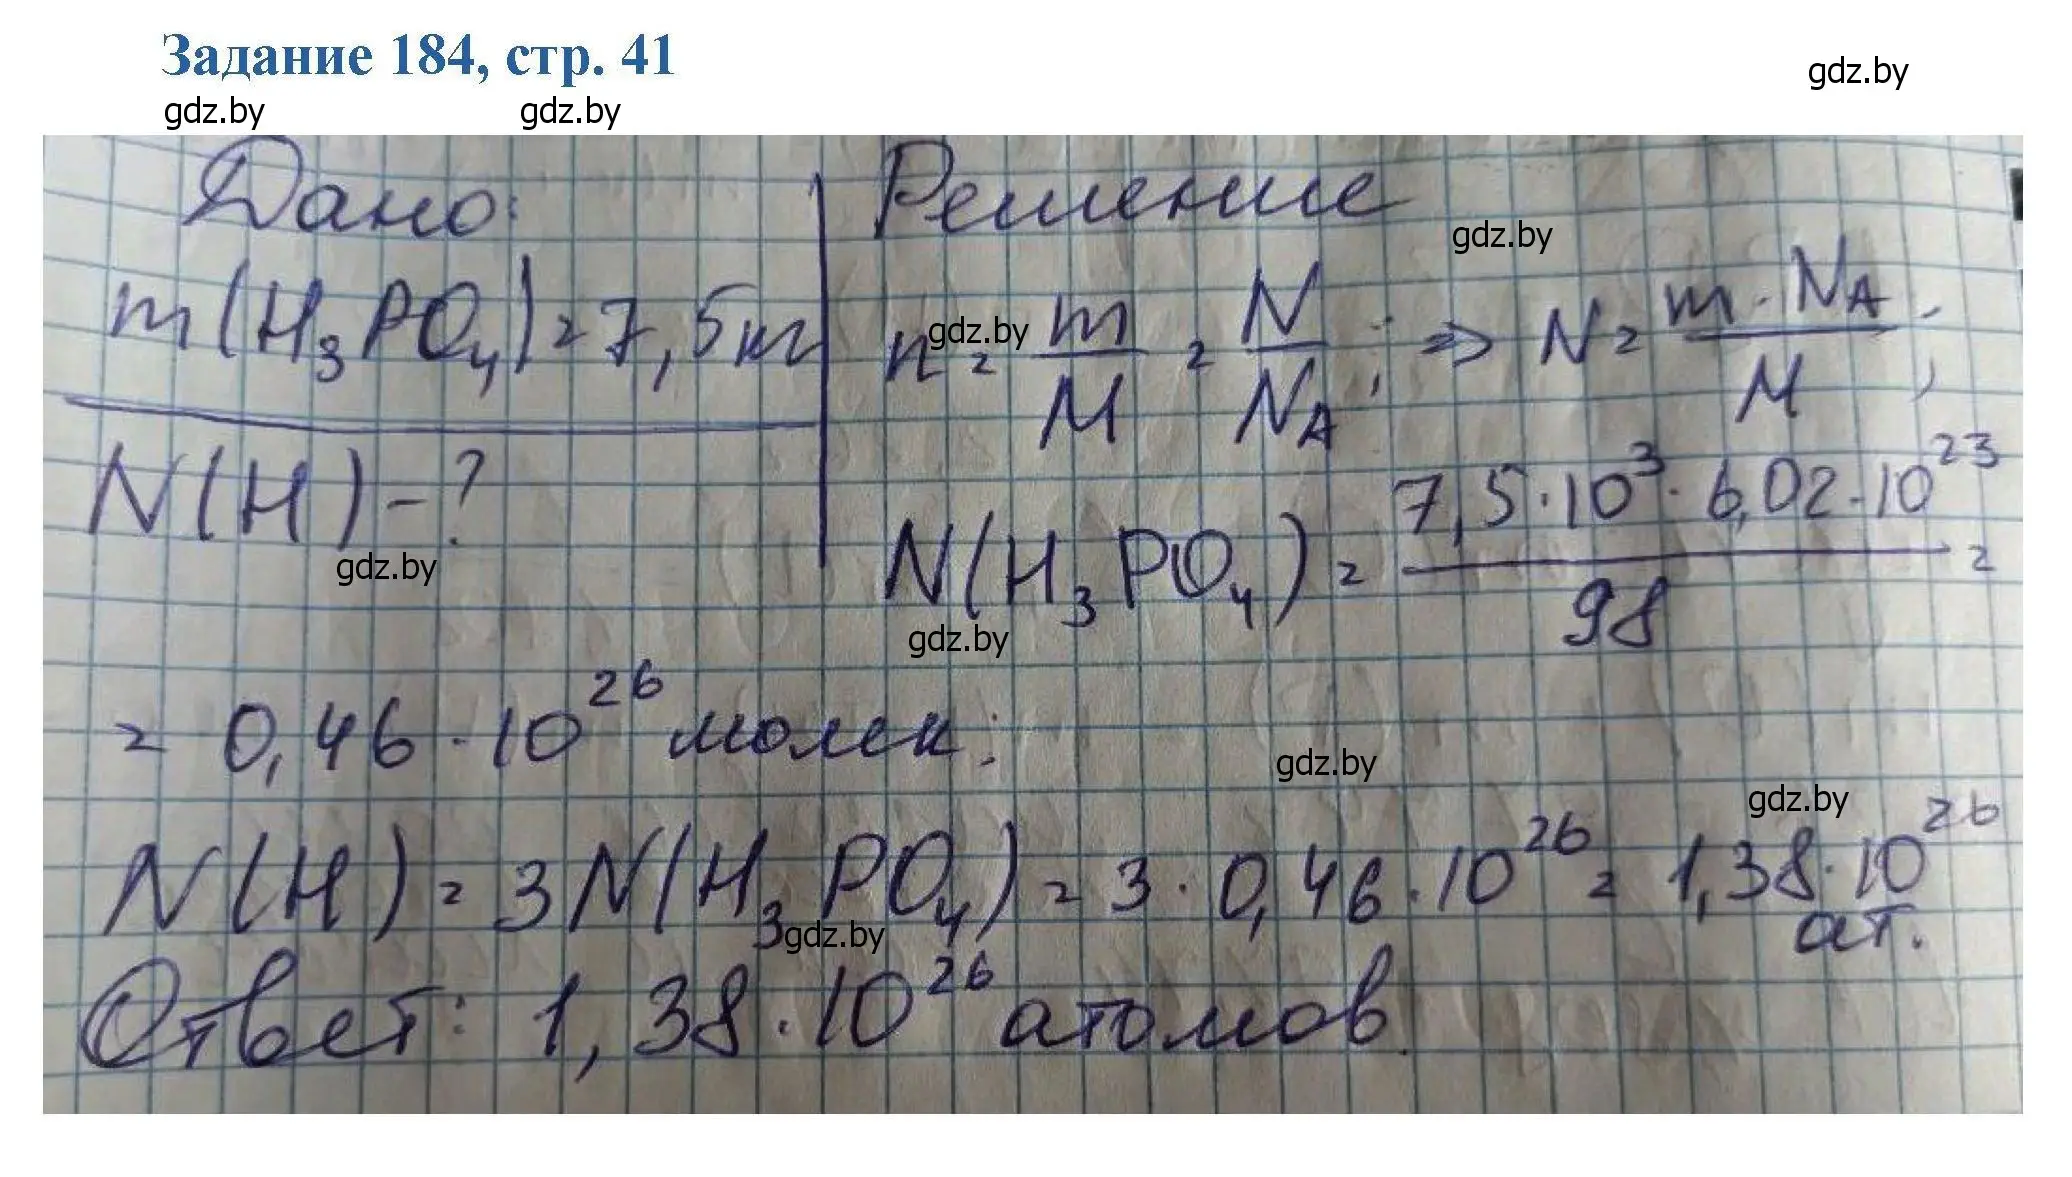 Задание 184, стр. 41
gdz.by
gdz.by gdz.by
Дано:
m(H₃PO₄) = 7,5 кг
N(H) - ?
gdz.by
Решение
gdz.by
n = m/M = N/N_A; ⇒ N = m · N_A / M;
gdz.by
N(H₃PO₄) = 7,5 · 10³ · 6,02 · 10²³ / 98 =
gdz.by
= 0,46 · 10²⁶ молек.
gdz.by
gdz.by
N(H) = 3N(H₃PO₄) = 3 · 0,46 · 10²⁶ = 1,38 · 10²⁶ ат.
gdz.by
Ответ: 1,38 · 10²⁶ атомов.